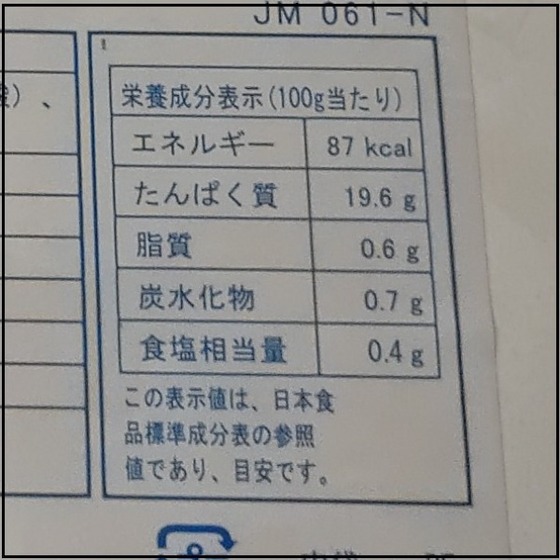 JM 061-N
栄養成分表示(100g当たり)
エネルギー 87 kcal
たんぱく質 19.6 g
脂質 0.6 g
炭水化物 0.7 g
食塩相当量 0.4 g
この表示値は、日本食
品標準成分表の参照
値であり、目安です。